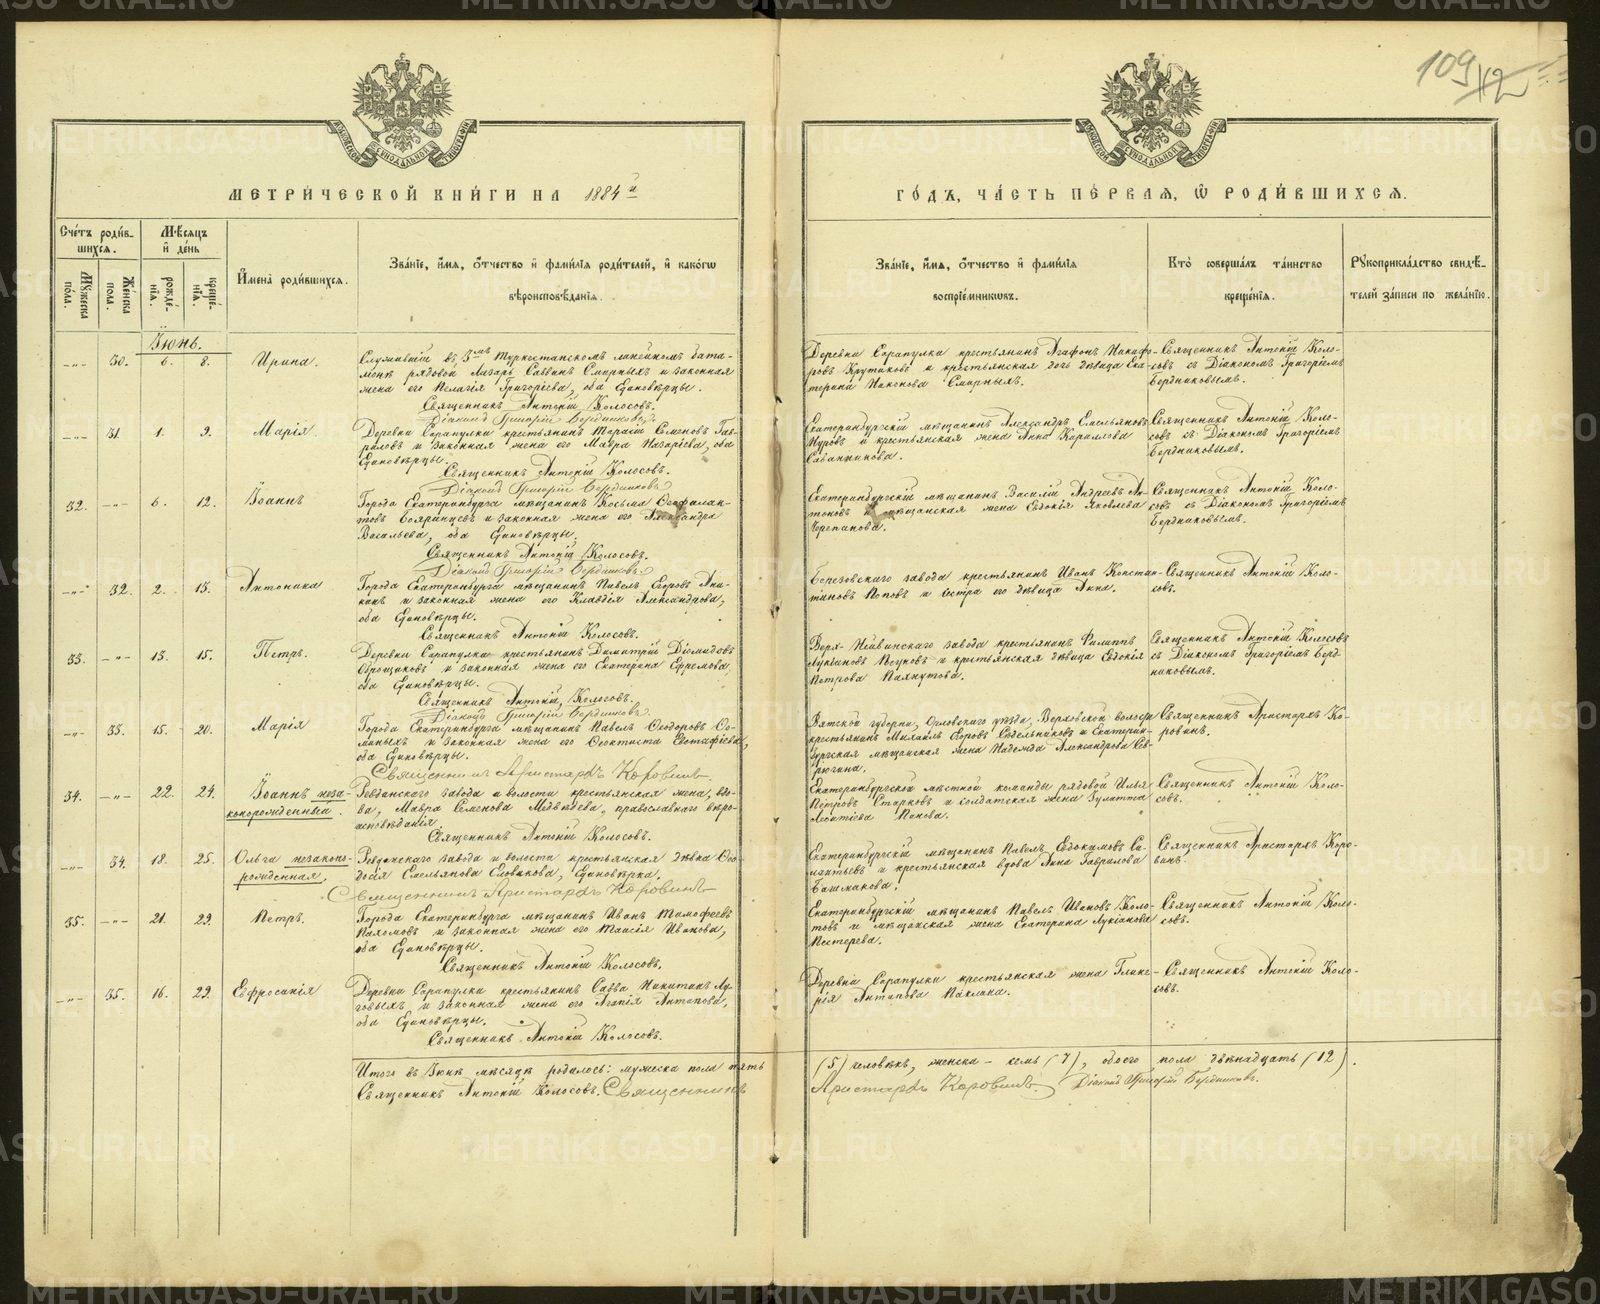 109
112
МОСКОВСКОЙ СѴНОДАЛЬНОЙ ТИПОГРАФІИ
МОСКОВСКОЙ СѴНОДАЛЬНОЙ ТИПОГРАФІИ
МЕТРИ́ЧЕСКОЙ КНИ́ГИ НА 1884й
ГО́ДЪ, ЧА́СТЬ ПЕ́РВАѦ, Ѡ҆ РОДИ́ВШИХСѦ.
Сче́тъ роди́в-
шихсѧ.
Мꙋжеска по́ла.
Же́нска по́ла.
Мѣ́сѧцъ
и҆ де́нь
рожде́-нїѧ.
креще́-нїѧ.
И҆мена̀ роди́вшихсѧ.
Зва́нїе, и҆́мѧ, ѻ҆́тчество и҆ фами́лїѧ роди́телей, и҆ како́гѡ
вѣроисповѣ́данїѧ.
Зва́нїе, и҆́мѧ, ѻ҆́тчество и҆ фами́лїѧ
воспрїе́мникѡвъ.
Кто̀ соверша́лъ та́инство
креще́нїѧ.
Рꙋкоприкла́дство свидѣ́-
телей за́писи по жела́нїю.
Іюнь.
-"- 30. 6. 8. Ирина.
Служившій въ 3мъ Туркестанскомъ линейномъ бата-
ліонѣ рядовой Лазарь Саввинъ Смирныхъ и законная
жена его Пелагія Григорієва, оба Единовѣрцы.
Священникъ Антоній Колосовъ.
Діаконъ Григорій Бердниковъ
Деревни Сарапулки крестьянинъ Агафонъ Никифо-
ровъ Крутиковъ и крестьянская дочь дѣвица Ека-
терина Иаконова Смирныхъ.
Священникъ Антоній Коло-
совъ съ Діакономъ Григоріемъ
Бердниковымъ.
-"- 31. 1. 9. Марія.
Деревни Сарапулки крестьянинъ Тарасій Семеновъ Гав-
риловъ и законная жена его Мавра Назаріева, оба
Единовѣрцы.
Священникъ Антоній Колосовъ.
Діаконъ Григорій Бердниковъ
Екатеринбургскій мѣщанинъ Александръ Емельяновъ
Нуровъ и крестьянская жена Анна Кориллова
Сабанчинова.
Священникъ Антоній Коло-
совъ съ Діакономъ Григоріемъ
Бердниковымъ.
32. -"- 6. 12. Іоаннъ
Города Екатеринбурга мѣщанинъ Косьма Феофилак-
товъ Бояринцевъ и законная жена его Александра
Васильева, оба Единовѣрцы.
Священникъ Антоній Колосовъ.
Діаконъ Григорій Бердниковъ
Екатеринбургскій мѣщанинъ Василій Андреевъ Ан-
тоновъ и мѣщанская жена Евдокія Яковлева
Черепанова.
Священникъ Антоній Коло-
совъ съ Діакономъ Григоріемъ
Бердниковымъ.
-"- 32. 2. 13. Антонина
Города Екатеринбурга мѣщанинъ Павелъ Егоровъ Ани-
кинъ и законная жена его Клавдія Александрова,
оба Единовѣрцы.
Священникъ Антоній Колосовъ.
Березовскаго завода крестьянинъ Иванъ Констан-
тиновъ Поповъ и сестра его дѣвица Анна.
Священникъ Антоній Коло-
совъ.
33. -"- 13. 15. Петръ.
Деревни Сарапулки крестьянинъ Димитрій Діомидовъ
Оброщиковъ и законная жена его Екатерина Ефремова,
оба Единовѣрцы.
Священникъ Антоній Колосовъ.
Діаконъ Григорій Бердниковъ
Верх-Нейвинскаго завода крестьянинъ Филиппъ
Лукіановъ Пѣуновъ и крестьянская дѣвица Евдокія
Петрова Пахнутова.
Священникъ Антоній Колосовъ
съ Діакономъ Григоріемъ Берд-
никовымъ.
-"- 33. 15. 20. Марія
Города Екатеринбурга мѣщанинъ Павелъ Феодоровъ Фо-
миныхъ и законная жена его Феоктиста Евстафіева,
оба Единовѣрцы.
Священникъ Аристархъ Коровинъ.
Вятской губерніи, Орловскаго уѣзда, Верховской волости
крестьянинъ Михаилъ Егоровъ Седельниковъ и Екатерин-
бургская мѣщанская жена Надежда Александрова Сев-
рюгина.
Священникъ Аристархъ Ко-
ровинъ.
34. -"- 22. 24. Іоаннъ неза-
конорожденный.
Ревданскаго завода и волости крестьянская жена, вдо-
ва, Мавра Семенова Медвѣдева, православнаго вѣро-
исповѣданія.
Священникъ Антоній Колосовъ.
Екатеринбургской мѣстной команды рядовой Илья
Петровъ Старковъ и солдатская жена Улитта
Леонтіева Попова.
Священникъ Антоній Коло-
совъ.
-"- 34. 18. 25. Ольга незакон-
рожденная,
Ревдинскаго завода и волости крестьянская дѣвка Фео-
досія Емельянова Словикова, Единовѣрка.
Священникъ Аристархъ Коровинъ
Екатеринбургскій мѣщанинъ Павелъ Евдокимовъ Са-
лантьевъ и крестьянская вдова Анна Гаврилова
Башмакова.
Священникъ Аристархъ Коро-
винъ.
35. -"- 21. 29. Петръ.
Города Екатеринбурга мѣщанинъ Иванъ Тимофеевъ
Пахомовъ и законная жена его Таисія Иванова,
оба Единовѣрцы.
Священникъ Антоній Колосовъ.
Екатеринбургскій мѣщанинъ Павелъ Ивановъ Коло-
товъ и мѣщанская жена Екатерина Лукіанова
Пестерева.
Священникъ Антоній Коло-
совъ.
-"- 35. 16. 29. Евфросинія
Деревни Сарапулки крестьянинъ Савва Никитинъ Лу-
говыхъ и законная жена его Агапія Антипова,
оба Единовѣрцы.
Священникъ Антоній Колосовъ.
Деревни Сарапулки крестьянская жена Глике-
рія Антипова Паклина.
Священникъ Антоній Коло-
совъ.
Итого въ Іюнѣ мѣсяцѣ родилось: мужеска пола пять (5) человѣкъ, женска – семь (7), обоего пола двѣнадцать (12).
Священникъ Антоній Колосовъ. Священникъ Аристархъ Коровинъ. Діаконъ Григорій Бердниковъ.
METRIKI.GASO-URAL.RU